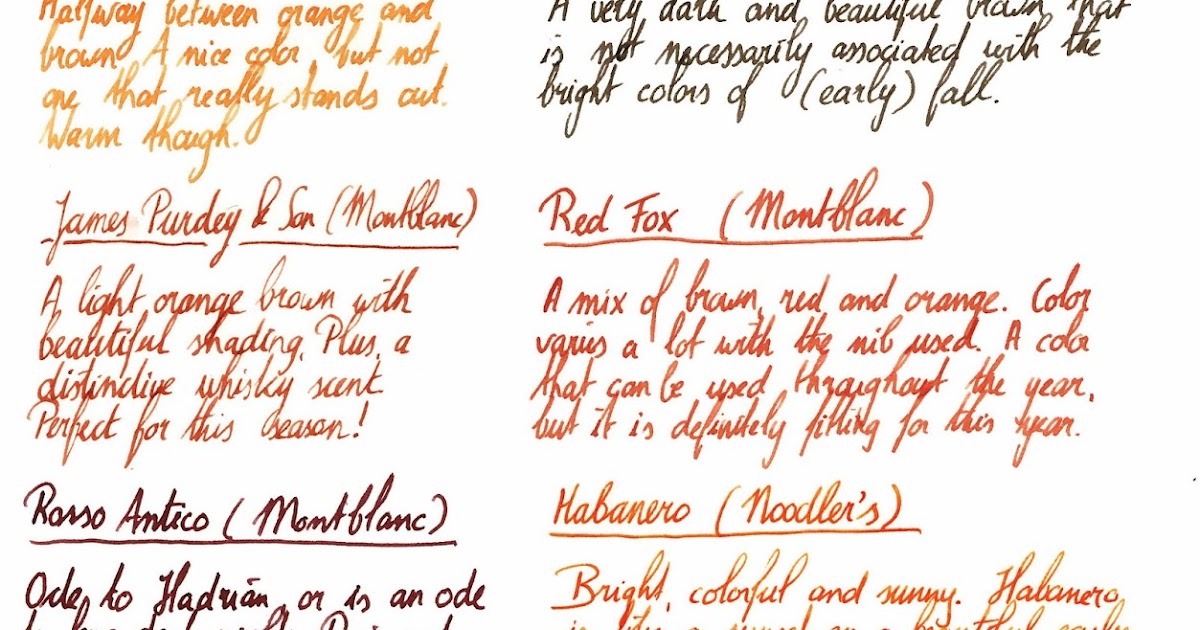 Halfway between orange and
brown. A nice color, but not
one that really stands out.
Warm though.
A very dark and beautiful brown that
is not necessarily associated with the
bright colors of (early) fall.
James Purdey & Son (Montblanc)
A light orange brown with
beautiful shading. Plus, a
distinctive whisky scent.
Perfect for this season!
Red Fox (Montblanc)
A mix of brown, red and orange. Color
varies a lot with the nib used. A color
that can be used throughout the year,
but it is definitely fitting for this year.
Rosso Antico (Montblanc)
Ode to Hadrian, or is an ode
Habanero (Noodler's)
Bright, colorful and sunny. Habanero
a sunset on a beautiful early